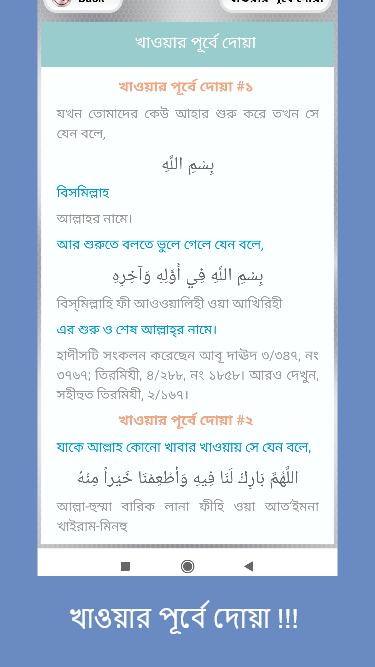 খাওয়ার পূর্বে দোয়া
খাওয়ার পূর্বে দোয়া #১
যখন তোমাদের কেউ আহার শুরু করে তখন সে
যেন বলে,
بِسْمِ اللَّهِ
বিসমিল্লাহ
আল্লাহর নামে।
আর শুরুতে বলতে ভুলে গেলে যেন বলে,
بِسْمِ اللَّهِ فِي أَوَّلِهِ وَآخِرِهِ
বিস্‌মিল্লাহি ফী আওওয়ালিহী ওয়া আখিরিহী
এর শুরু ও শেষ আল্লাহ্‌র নামে।
হাদীসটি সংকলন করেছেন আবূ দাঊদ ৩/৩৪৭, নং
৩৭৬৭; তিরমিযী, ৪/২৮৮, নং ১৮৫৮। আরও দেখুন,
সহীহুত তিরমিযী, ২/১৬৭।
খাওয়ার পূর্বে দোয়া #২
যাকে আল্লাহ কোনো খাবার খাওয়ায় সে যেন বলে,
اللَّهُمَّ بَارِكْ لَنَا فِيهِ وَأَطْعِمْنَا خَيْراً مِنْهُ
আল্লা-হুম্মা বারিক লানা ফীহি ওয়া আত‘ইমনা
খাইরাম-মিনহু
খাওয়ার পূর্বে দোয়া !!!